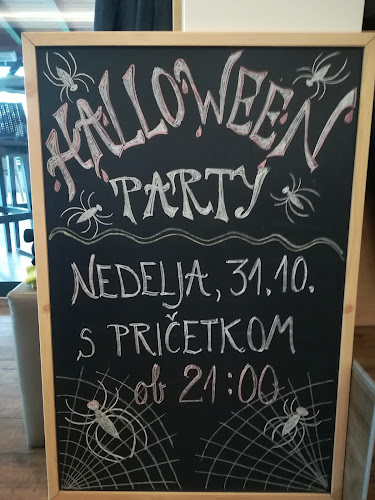 HALLOWEEN
PARTY
NEDELJA, 31.10.
S PRIČETKOM
ob 21:00